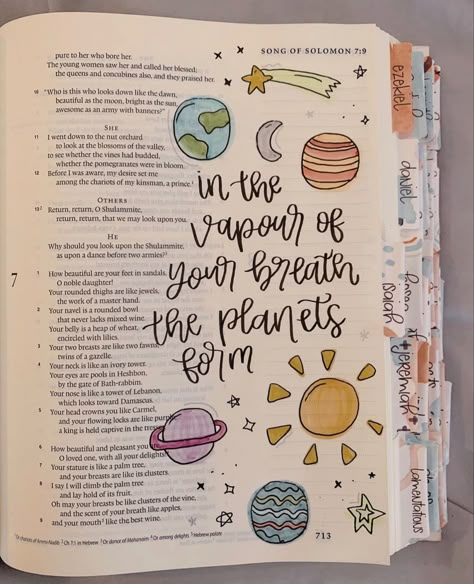 SONG OF SOLOMON 7:9
pure to her who bore her.
The young women saw her and called her blessed;
the queens and concubines also, and they praised her.
10 "Who is this who looks down like the dawn,
beautiful as the moon, bright as the sun,
awesome as an army with banners?"
SHE
11 I went down to the nut orchard
to look at the blossoms of the valley,
to see whether the vines had budded,
whether the pomegranates were in bloom.
12 Before I was aware, my desire set me
among the chariots of my kinsman, a prince.
OTHERS
13 Return, return, O Shulammite,
return, return, that we may look upon you.
HE
Why should you look upon the Shulammite,
as upon a dance before two armies?
7
1 How beautiful are your feet in sandals,
O noble daughter!
Your rounded thighs are like jewels,
the work of a master hand.
2 Your navel is a rounded bowl
that never lacks mixed wine.
Your belly is a heap of wheat,
encircled with lilies.
3 Your two breasts are like two fawns,
twins of a gazelle.
4 Your neck is like an ivory tower.
Your eyes are pools in Heshbon,
by the gate of Bath-rabbim.
Your nose is like a tower of Lebanon,
which looks toward Damascus.
5 Your head crowns you like Carmel,
and your flowing locks are like purple
a king is held captive in the
6 How beautiful and pleasant you
O loved one, with all your delights
7 Your stature is like a palm tree,
and your breasts are like its clusters.
8 I say I will climb the palm tree
and lay hold of its fruit.
Oh may your breasts be like clusters of the vine,
and the scent of your breath like apples,
9 and your mouth like the best wine.
in the
vapour of
your breath
the planets
form
713
ezekiel
daniel
isaiah
jeremiah
lamentations